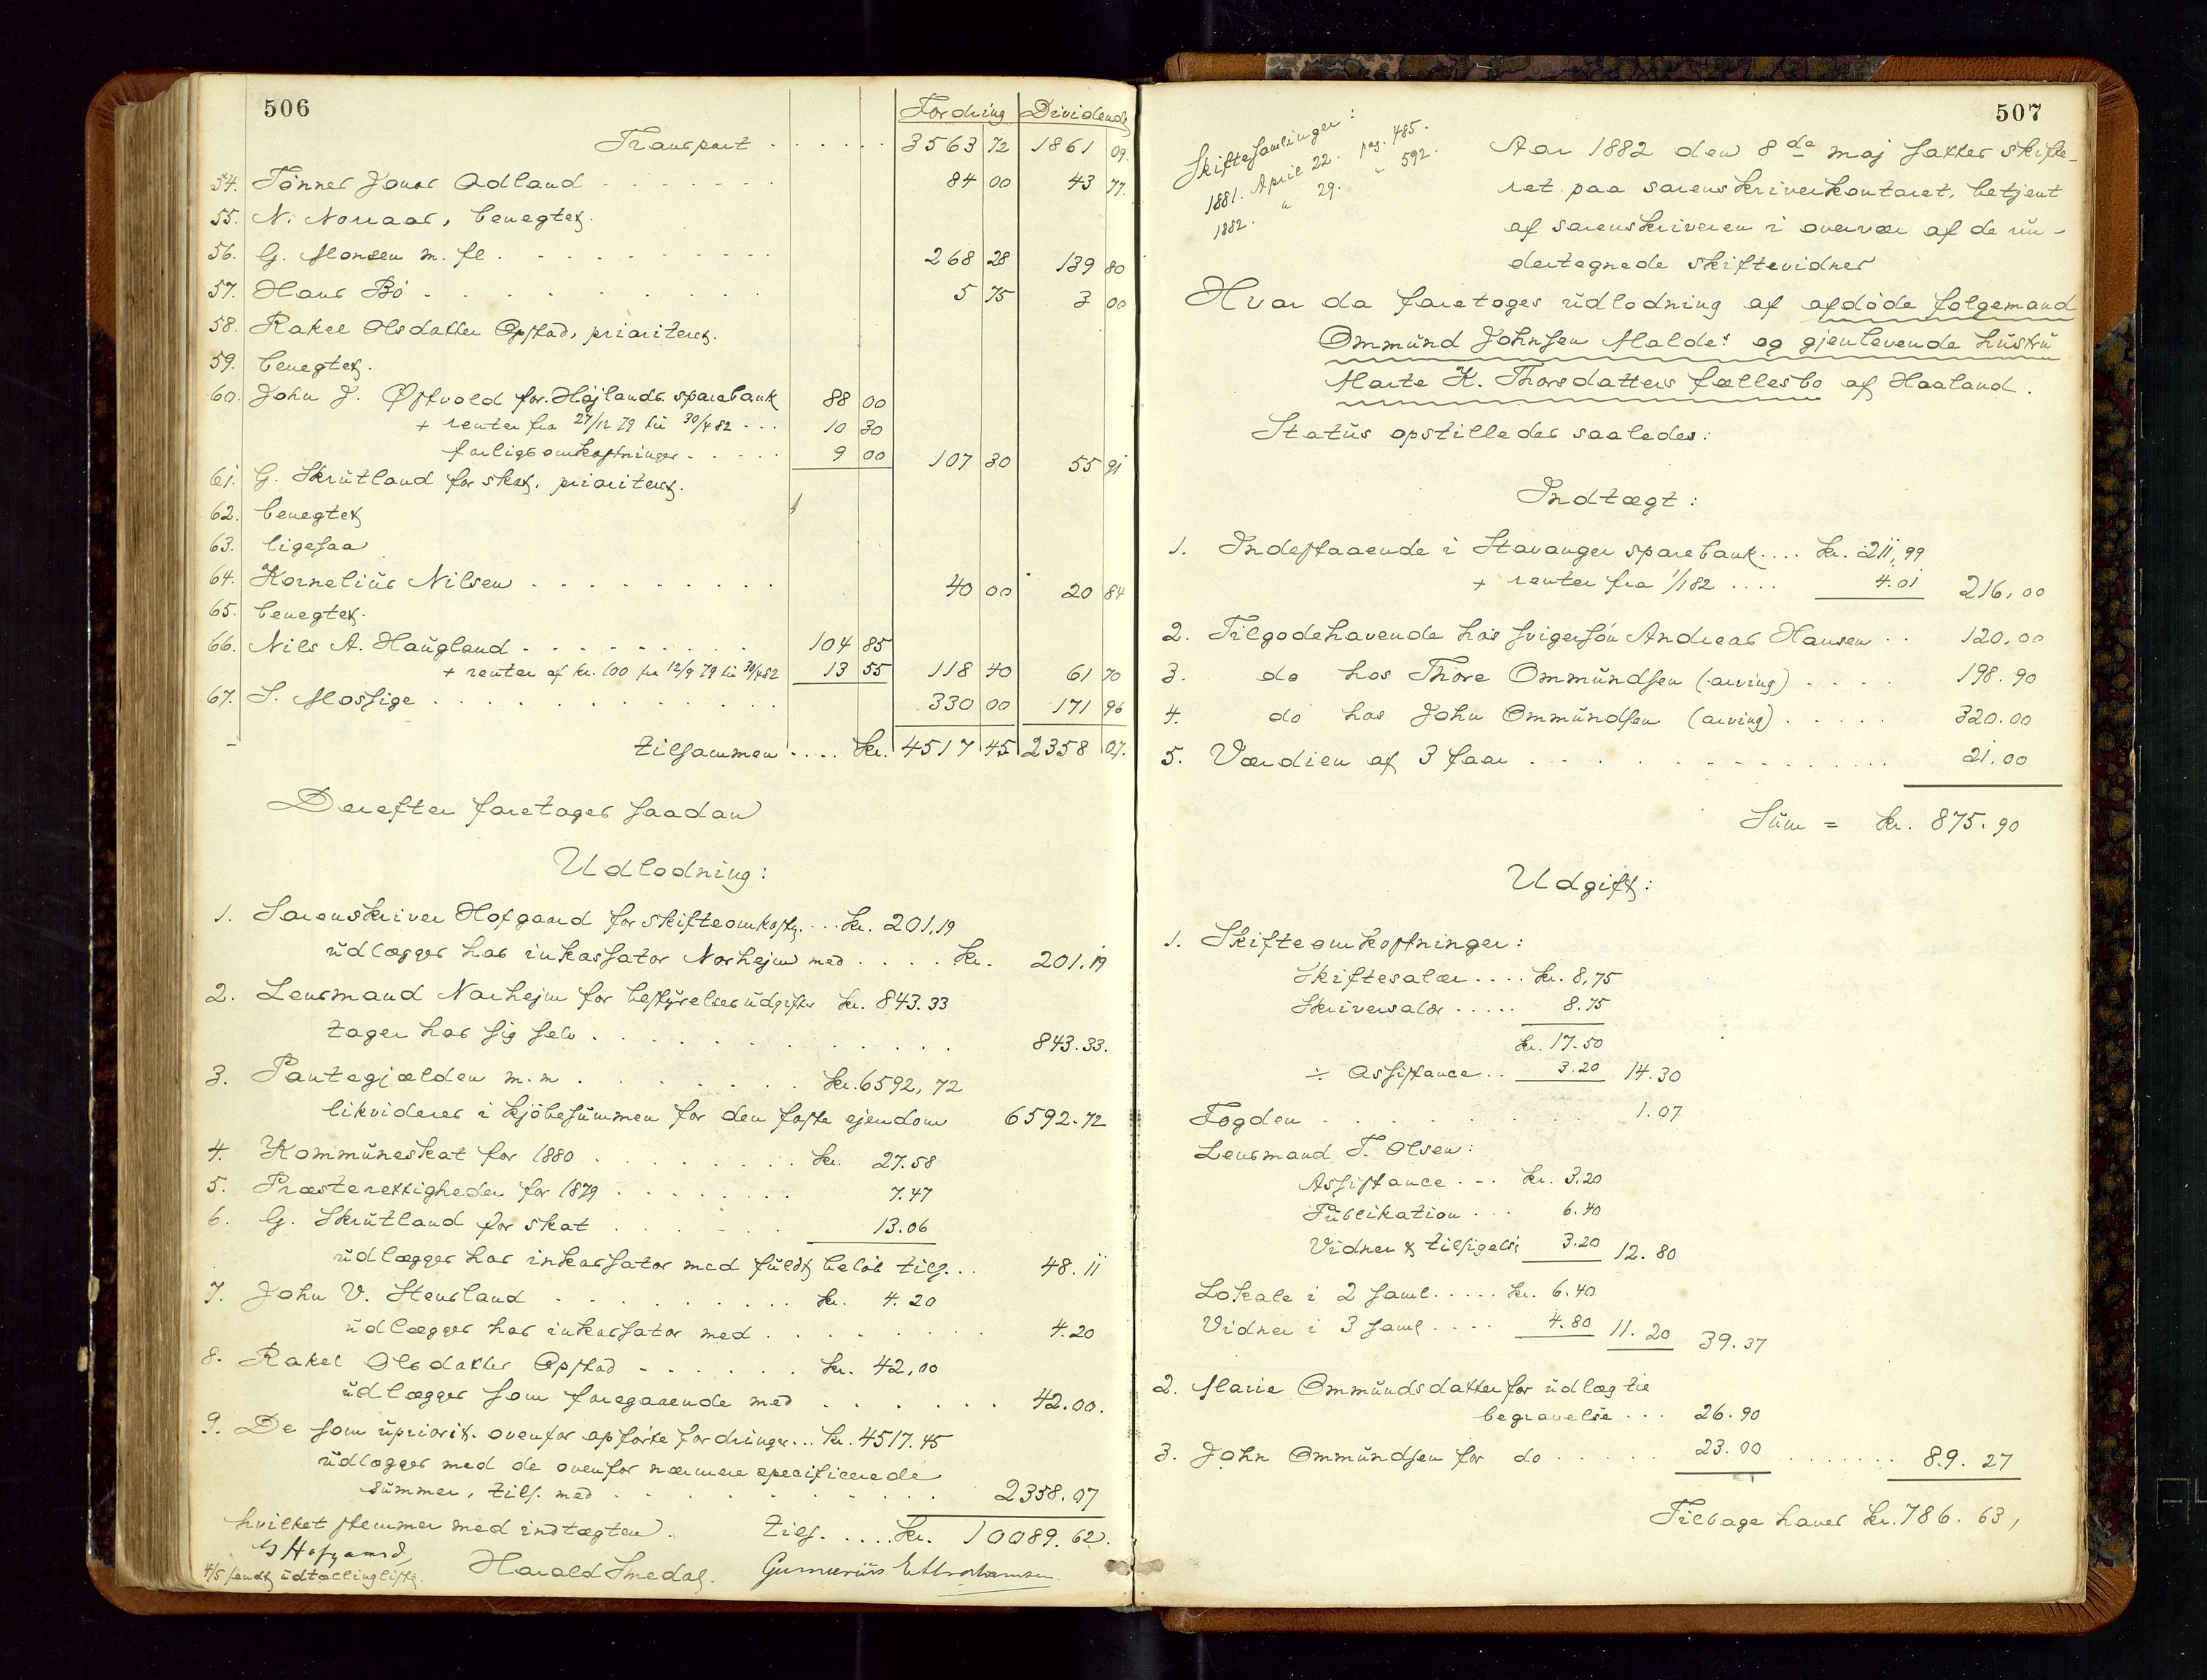 506
Fordring Dividende
Transport . . . . . . 3563 72 1861 09.
54. Tønnes Jonas Odland . . . . . . . 84 00 43 77.
55. N. Noraas, benegtet.
56. G. Monsen m. fl. . . . . . . . . . 268 28 139 80
57. Hans Bö . . . . . . . . . 5 75 3 00
58. Rakel Olsdatter Opstad, prioriteret.
59. benegtet.
60. John J. Østvold for Højlands sparebank 88 00
+ renter fra 27/12 79 til 30/4 82 . . . 10 30
forligsomkostninger . . . . . 9 00 107 30 55 91
61. G. Skrutland for skat, prioriteret.
62. benegtet
63. ligesaa
64. Kornelius Nilsen . . . . . . . . . 40 00 20 84
65. benegtet.
66. Nils A. Haugland . . . . . . . . . 104 85
+ renter af kr. 100 fra 12/9 79 til 30/4 82 13 55 118 40 61 70
67. S. Mossige . . . . . . . . . . . . 330 00 171 96
tilsammen . . . . kr. 4517 45 2358 07.
Derefter foretages saadan
Udlodning:
1. Sorenskriver Hofgaard for skifteomkostn. . . . kr. 201,19
udlægges hos inkassator Norhejm med . . . . kr. 201.19
2. Lensmand Norhejm for bestyrelsesudgifter kr. 843.33
tager hos sig selv . . . . . . . . . . . . . 843.33.
3. Pantegjælden m.m . . . . . . . . kr. 6592,72
likvideres i kjöbesummen for den faste ejendom 6592.72
4. Kommuneskat for 1880 . . . . . . . . kr. 27.58
5. Præsterettigheder for 1879 . . . . . . . 7.47
6. G. Skrutland for skat . . . . . . 13.06
udlægges hos inkassator med fuldt beløb tils. . . 48.11
7. John V. Stensland . . . . . . . . . . kr. 4.20
udlægges hos inkassator med . . . . . . . . 4.20
8. Rakel Olsdatter Opstad . . . . . . . kr. 42,00
udlægges som foregaaende med . . . . . . . 42.00.
9. De som upriorit. ovenfor opförte fordringer . . . kr. 4517.45
udlægges med de ovenfor nærmere specificerede
summer, tils. med . . . . . . . . . . . . 2358.07
hvilket stemmer med indtægten. tils. . . . . kr. 10089.62.
G Hofgaard,
4/5 sendt udtællingslist. Harald Smedal. Gumerius E Abrahamsen.
507
Skiftesamlinger:
1881. April 22. pag. 485.
1882. " 29. " 592.
Aar 1882 den 8de maj sattes skifte-
ret paa sorenskriverkontoret, betjent
af sorenskriveren i overvær af de un-
dertegnede skiftevidner
Hvor da foretoges udlodning af afdöde folgemand
Ommund Johnsen Malde's og gjenlevende hustru
Marte K. Thorsdatters fællesbo af Haaland.
Status opstilledes saaledes:
Indtægt:
1. Indestaaende i Stavanger sparebank . . . . kr. 211,99
+ renter fra 1/1 82 . . . . 4.01 216,00
2. Tilgodehavende hos svigersön Andreas Hansen . . 120,00
3. do hos Thore Ommundsen (arving) . . . . 198.90
4. do hos John Ommundsen (arving) . . . . . 320.00
5. Værdien af 3 faar . . . . . . . . . . . . . . . 21.00
Sum = kr. 875.90
Udgift:
1. Skifteomkostninger:
Skiftesalær . . . . kr. 8,75
Skriversalær . . . . . 8.75
kr. 17.50
÷ Assistance . . 3.20 14.30
Fogden . . . . . . . . . 1.07
Lensmand T. Olsen:
Assistance . . . kr. 3.20
Publikation . . . 6.40
Vidner & tilsigelse 3.20 12.80
Lokale i 2 saml. . . . . kr. 6.40
Vidner i 3 saml . . . . 4.80 11.20 39.37
2. Marie Ommundsdatter for udlæg til
begravelse . . . 26.90
3. John Ommundsen for do . . . . . 23.00 . . . . . . . 89.27
Tilbage haves kr. 786.63,